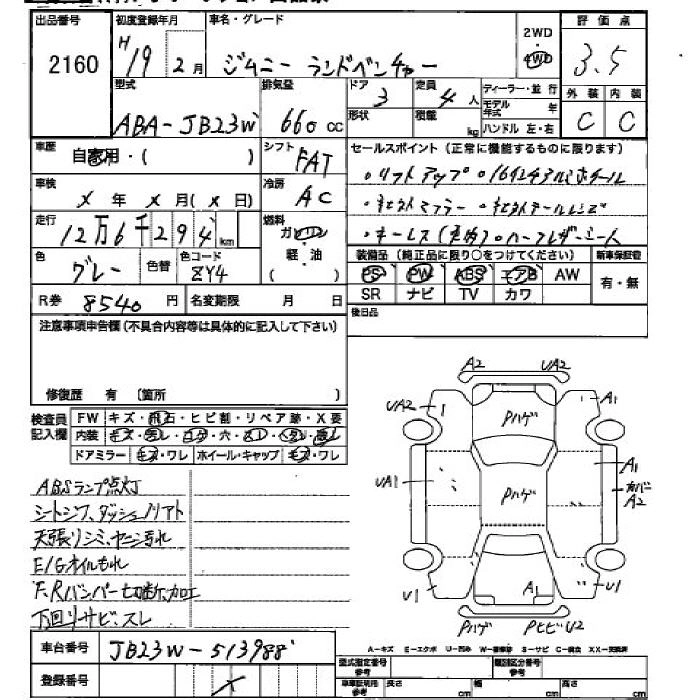 出品番号 初度登録年月 車名・グレード 評価点
2160 H19 2月 ジムニー ランドベンチャー 2WD 4WD 3.5
型式 排気量 ドア 定員 ディーラー・並行 外装 内装
ABA-JB23W 660 cc 3 4人 モデル年式 年 C C
形状 積載 kg ハンドル 左・右
車歴 自家用・( ) シフト FAT セールスポイント(正常に機能するものに限ります)
・リフトアップ ・16インチアルミホイール
車検 X年 X月(X日) 冷房 AC ・社外マフラー ・社外テールレンズ
走行 12万6千294km 燃料 ガソリン 軽・油 ( ) ・キーレス(実効)・ハーフレザーシート
装備品(純正品に限り○をつけてください) 新車保証書
色 グレー 色替 色コード ZY4 PS PW ABS エアB AW 有・無
SR ナビ TV カワ
R券 8540円 名変期限 月 日 後日品
注意事項申告欄(不具合内容等は具体的に記入して下さい)
修復歴 有 〔箇所 〕
検査員記入欄 FW キズ・飛石・ヒビ割・リペア跡・X要
内装
ドアミラー キズ・ワレ ホイール・キャップ キズ・ワレ
ABSランプ点灯
シートシワ、ダッシュノリアト
天張リシミ、ヤニ汚れ
E/Gオイルもれ
F,Rバンパー切断、加工
下回りサビ、スレ
車台番号 JB23W-513988
登録番号 X
A2 UA2
UA2 Pハゲ A1
UA1 Pハゲ A1 カバーA2
U1 A1 U1
Pハゲ PヒビU2
A-キズ E-エクボ U-凹み W-補修跡 S-サビ C-腐食 XX-交換済
型式指定番号 参考 類別区分番号 参考
車庫証明用 参考 長さ cm 幅 cm 高さ cm